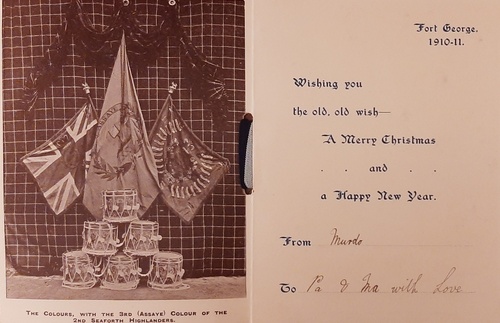 The Colours, with the 3rd (Assaye) Colour of the
2nd Seaforth Highlanders.
Fort George.
1910-11.
Wishing you
the old, old wish—
A Merry Christmas
. . and . .
a Happy New Year.
From Murdo
To Pa & Ma with Love